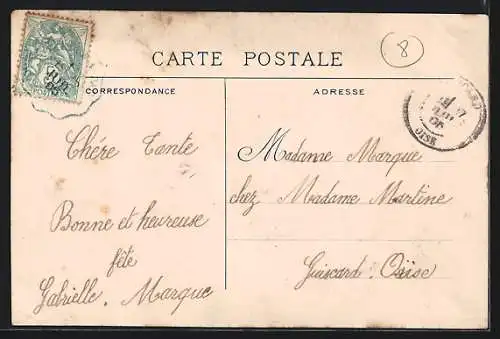 CARTE POSTALE
8
CORRESPONDANCE
ADRESSE
Chére Tante
Bonne et heureuse
fête
Gabrielle. Marque
Madame Marque
chez Madame Martine
Guiscard. Oïse
OISE